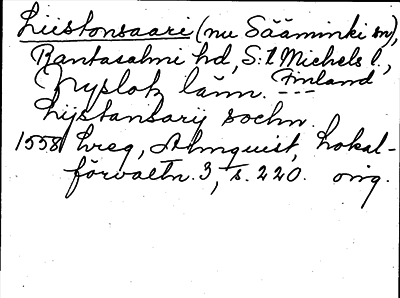 Liistonsaari (nu Sääminki sn),
Rantasalmi hd, S:t Michels l.,
Nyslott länn. Finland
Lijstansarij sochn.
1558 hreg, Almquist, Lokal-
förvaltn. 3, s. 220. orig.